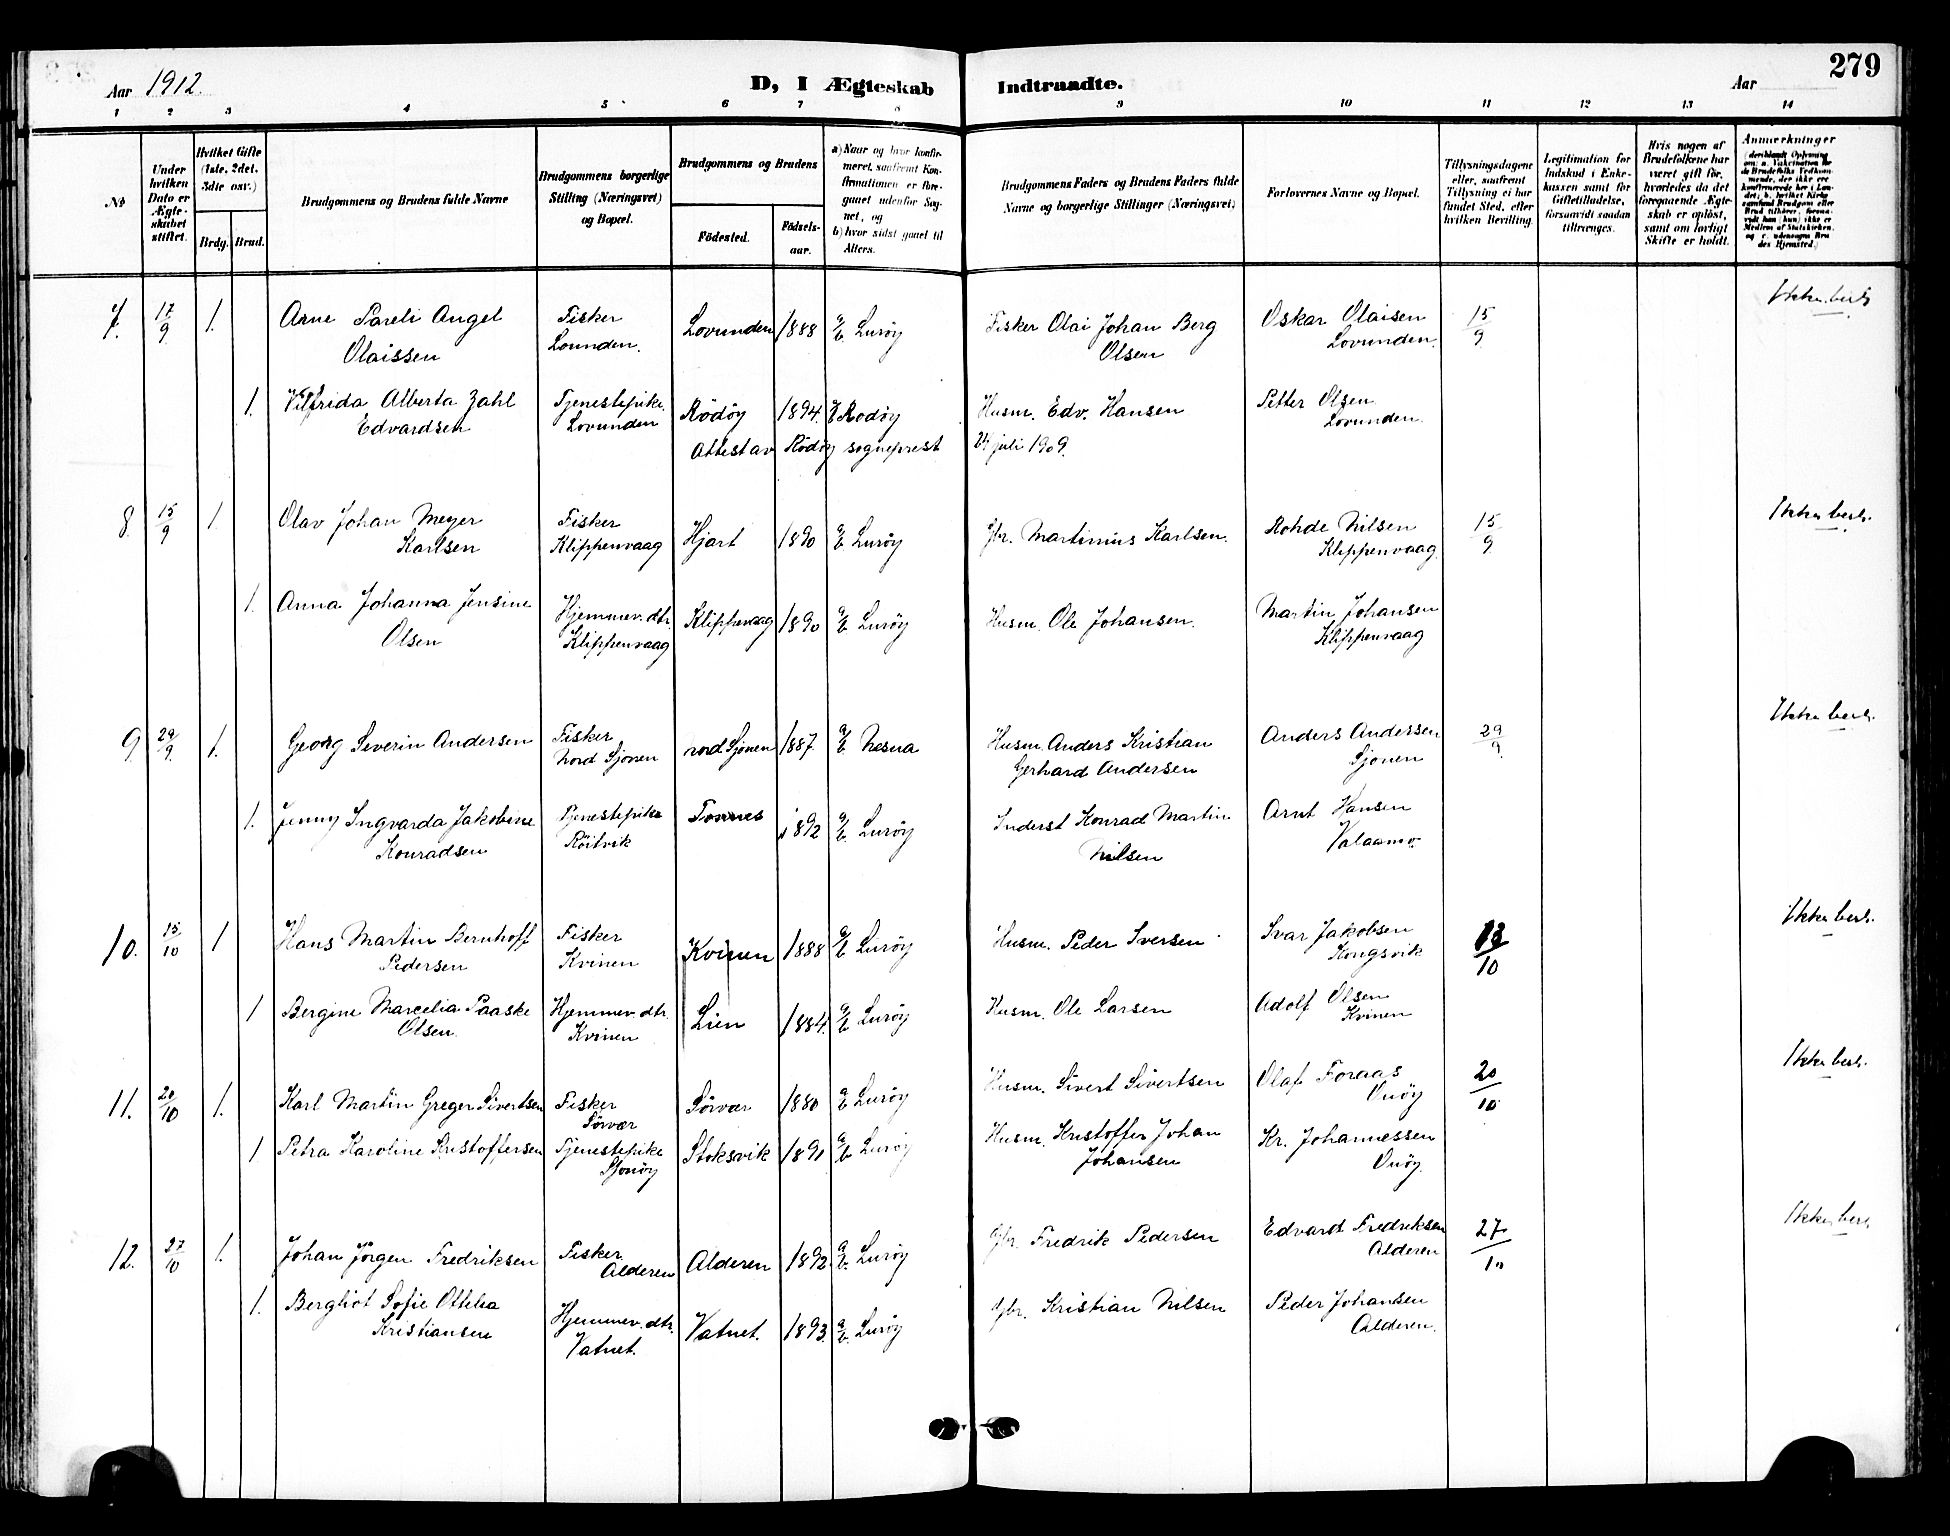 279
Aar 1912.
D, I Ægteskab Indtraadte.
Aar
1 2 3 4 5 6 7 8 9 10 11 12 13 14
No
Under hvilken Dato er Ægteskabet stiftet.
Hvilket Gifte (1ste, 2det, 3die osv.)
Brdg. Brud.
Brudgommens og Brudens fulde Navne
Brudgommens borgerlige Stilling (Næringsvei) og Bopæl.
Brudgommens og Brudens
Födested.
Födselsaar.
a) Naar og hvor konfirmeret, saafremt Konfirmationen er foregaaet udenfor Sognet, og
b) hvor sidst gaaet til Alters.
Brudgommens Faders og Brudens Faders fulde Navne og borgerlige Stillinger (Næringsvei)
Forlovernes Navne og Bopæl.
Tillysningsdagene eller, saafremt Tillysning ei har fundet Sted, efter hvilken Bevilling.
Legitimation for Indskud i Enkekassen samt for Giftetilladelse, forsaavidt saadan tiltrænges.
Hvis nogen af Brudefolkene har været gift før, hvorledes da det foregaaende Ægteskab er opløst, samt om lovligt Skifte er holdt.
Anmærkninger
7. 17/9 1. Arne Pareli Angel Fisker Lovunden 1888 a/b Lurøy Fisker Olai Johan Berg Oskar Olaisen 15/9 Ikke besl.
Olaissen Lounden. Olsen Lovunden.
1. Vilfrida Alberta Zahl Tjenestepike. Rödöy 1894. Rodøy Husm. Edv. Hansen Petter Olsen
Edvardsen Lovunden Lovunden.
Attest av Rödöy sogneprest 24 juli 1909.
8. 15/9 1. Olav Johan Meyer Fisker Hjart 1890 a/b Lurøy Gbr. Martinius Karlsen. Rohde Nilsen 15/9 Ikke besl.
Karlsen Klippenvaag Klippenvaag.
1. Anna Johanna Jensine Hjemmev. dtr. Klippevaag 1890 a/b Lurøy Husm. Ole Johansen. Martin Johansen
Olsen Klippenvaag Klippenvaag
9. 29/9. 1. Georg Severin Andersen Fisker nord Sjonen 1887. a/b Nesna Husm. Anders Kristian Anders Anderssen 29/9 Ikke besl.
Nord Sjonen Gerhard Andersen Sjonen
1. Jenny Ingvarda Jakobine Tjenestepike Tonnes 1892 a/b Lurøy Inderst Konrad Martin Arnt Hansen
Konradsen Röitvik Nilsen Valaamo.
10. 13/10 1 Hans Martin Bernhoff Fisker Kvinen 1888 a/b Lurøy Husm. Peder Iversen Ivar Jakobsen 13/10 Ikke besl.
Pedersen Kvinen Kongsvik
1 Bergine Marcelia Paaske Hjemmev. dtr. Lien 1884. a/b Lurøy Husm. Ole Larsen Adolf Olsen
Olsen. Kvinen Kvinen
11. 20/10 1. Karl Martin Greger Sivertsen Fisker Sörvær 1880 a/b Lurøy Husm. Sivert Sivertsen Olaf Foraas 20/10 Ikke besl.
Sörvær Onöy
1 Petra Karoline Kristoffersen Tjenestepike Stoksvik 1891 a/b Lurøy Husm. Kristoffer Johan Kr. Johannessen
Johansen Onöy.
12. 27/10 1. Johan Jörgen Fredriksen Fisker Alderen 1892 a/b. Lurøy Gbr. Fredrik Pedersen Edvard Fredriksen 27/10 Ikke besl.
Alderen Alderen
1. Bergliot Sofie Ottilia Hjemmev. dtr. Vatnet. 1893. a/b. Lurøy Gbr. Kristian Nilsen Peder Johansen
Kristiansen Vatnet. Alderen.